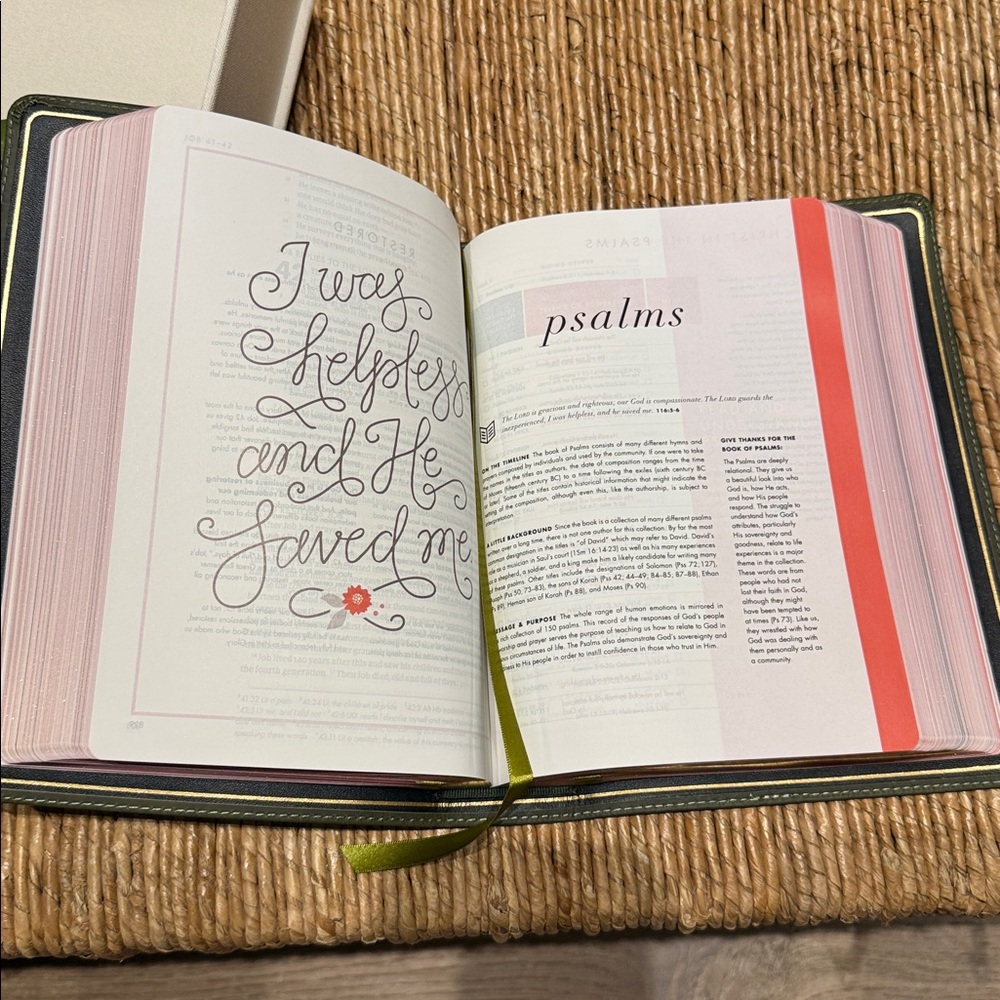 I was
helpless
and He
saved me.
psalms
The LORD is gracious and righteous; our God is compassionate. The LORD guards the
inexperienced; I was helpless, and he saved me. 116:5-6
ON THE TIMELINE The book of Psalms consists of many different hymns and
composed by individuals and used by the community. If one were to take
the names in the titles as authors, the date of composition ranges from the time
of Moses (fifteenth century BC) to a time following the exiles (sixth century BC
or later). Some of the titles contain historical information that might indicate the
setting of the composition, although even this, like the authorship, is subject to
interpretation.
A LITTLE BACKGROUND Since the book is a collection of many different psalms
written over a long time, there is not one author for this collection. By far the most
common designation in the titles is "of David" which may refer to David. David's
role as a musician in Saul's court (1Sm 16:14-23) as well as his many experiences
as a shepherd, a soldier, and a king make him a likely candidate for writing many
of these psalms. Other titles include the designations of Solomon (Pss 72; 127),
Asaph (Pss 50; 73–83), the sons of Korah (Pss 42; 44–49; 84–85; 87–88), Ethan
(Ps 89), Heman son of Korah (Ps 88), and Moses (Ps 90).
MESSAGE & PURPOSE The whole range of human emotions is mirrored in
rich collection of 150 psalms. This record of the responses of God's people
worship and prayer serves the purpose of teaching us how to relate to God in
circumstances of life. The Psalms also demonstrate God's sovereignty and
to His people in order to instill confidence in those who trust in Him.
GIVE THANKS FOR THE
BOOK OF PSALMS:
The Psalms are deeply
relational. They give us
a beautiful look into who
God is, how He acts,
and how His people
respond. The struggle to
understand how God's
attributes, particularly
His sovereignty and
goodness, relate to life
experiences is a major
theme in the collection.
These words are from
people who had not
lost their faith in God,
although they might
have been tempted to
at times (Ps 73). Like us,
they wrestled with how
God was dealing with
them personally and as
a community.